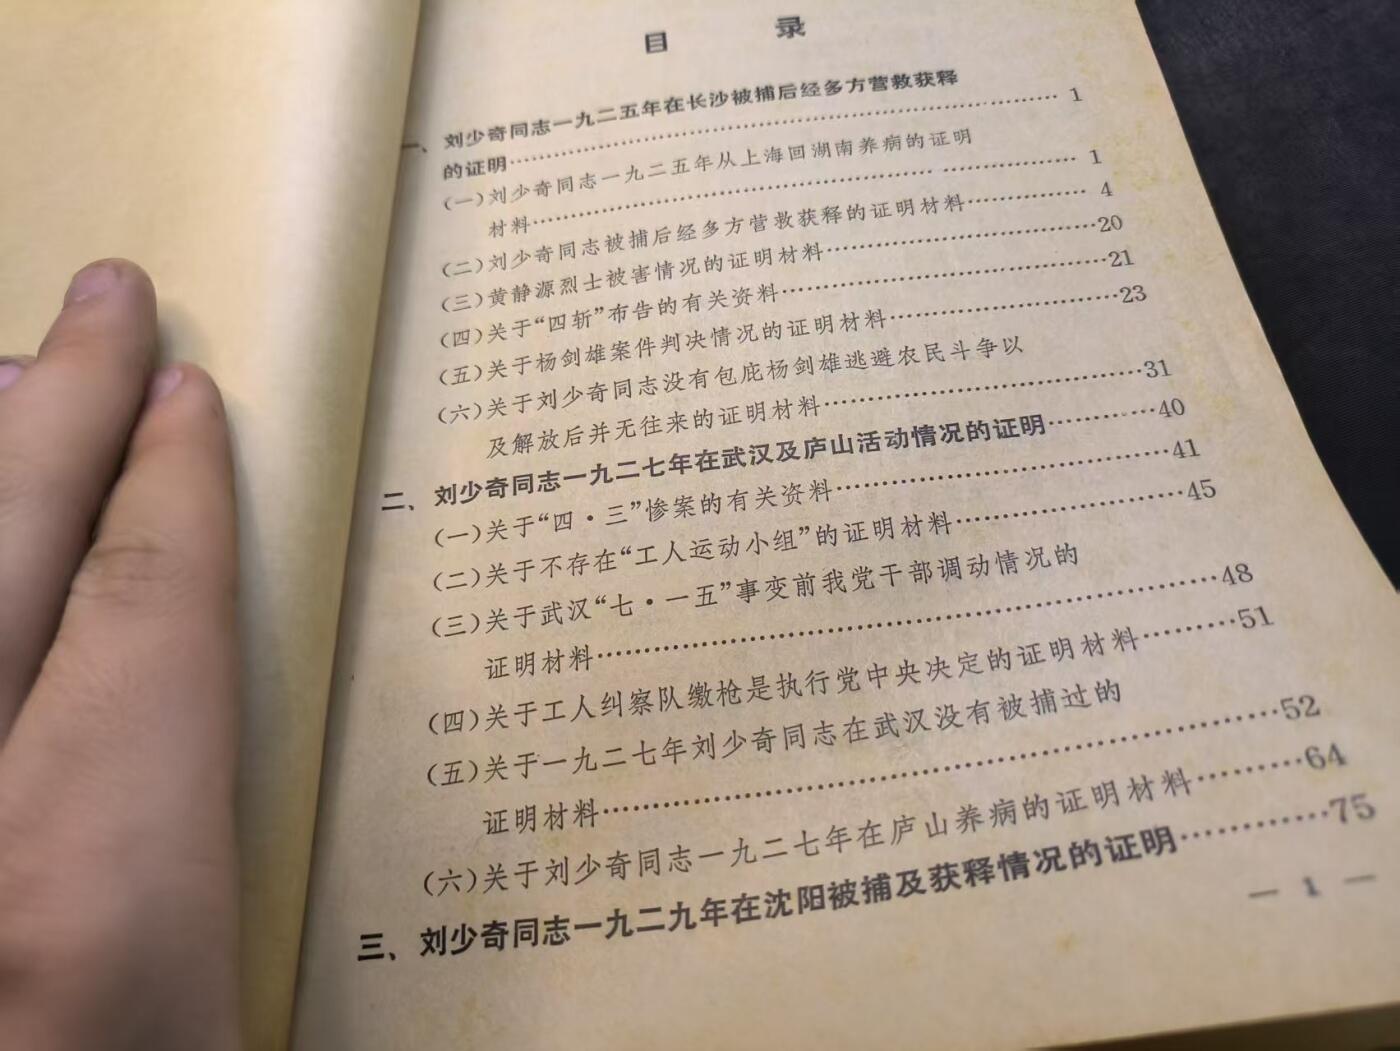 目 录
一、刘少奇同志一九二五年在长沙被捕后经多方营救获释
的证明…………………………………………………… 1
(一)刘少奇同志一九二五年从上海回湖南养病的证明
材料…………………………………………………… 1
(二)刘少奇同志被捕后经多方营救获释的证明材料………… 4
(三)黄静源烈士被害情况的证明材料…………………………20
(四)关于“四斩”布告的有关资料………………………………21
(五)关于杨剑雄案件判决情况的证明材料……………………23
(六)关于刘少奇同志没有包庇杨剑雄逃避农民斗争以
及解放后并无往来的证明材料…………………………31
二、刘少奇同志一九二七年在武汉及庐山活动情况的证明…………40
(一)关于“四·三”惨案的有关资料……………………………41
(二)关于不存在“工人运动小组”的证明材料…………………45
(三)关于武汉“七·一五”事变前我党干部调动情况的
证明材料……………………………………………………48
(四)关于工人纠察队缴枪是执行党中央决定的证明材料………51
(五)关于一九二七年刘少奇同志在武汉没有被捕过的
证明材料……………………………………………………52
(六)关于刘少奇同志一九二七年在庐山养病的证明材料………64
三、刘少奇同志一九二九年在沈阳被捕及获释情况的证明…………75
— 1 —